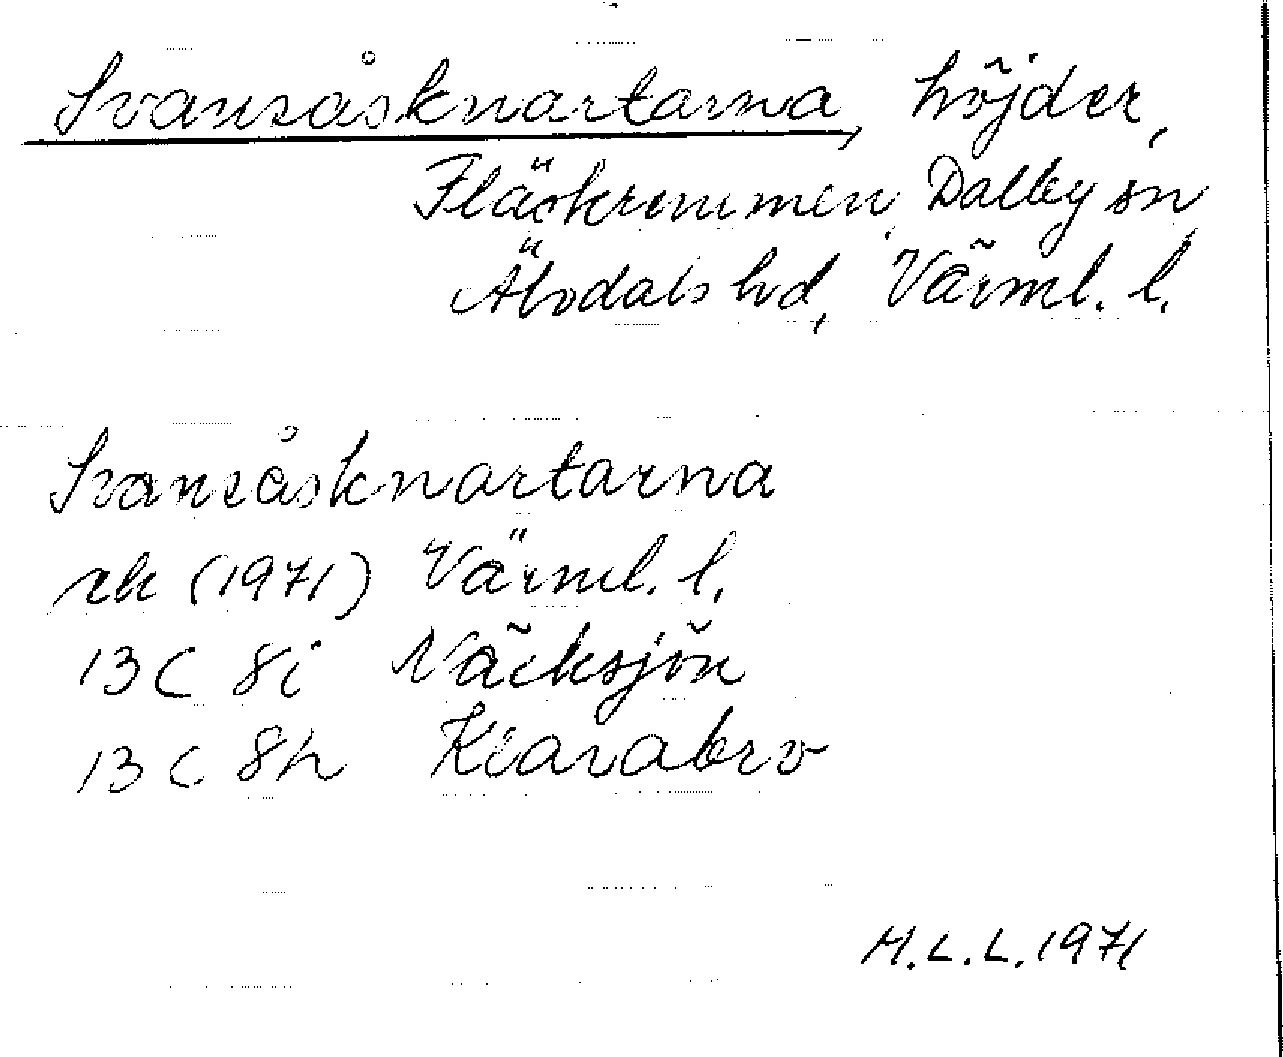 Svansåsknartarna, höjder,
Fläskremmen, Dalby sn,
Älvdals hd, Värml. l.
Svansåsknartarna
rk (1971) Värml. l.
13C 8i Näcksjön
13C 8h Klarabro
M.L.L. 1971